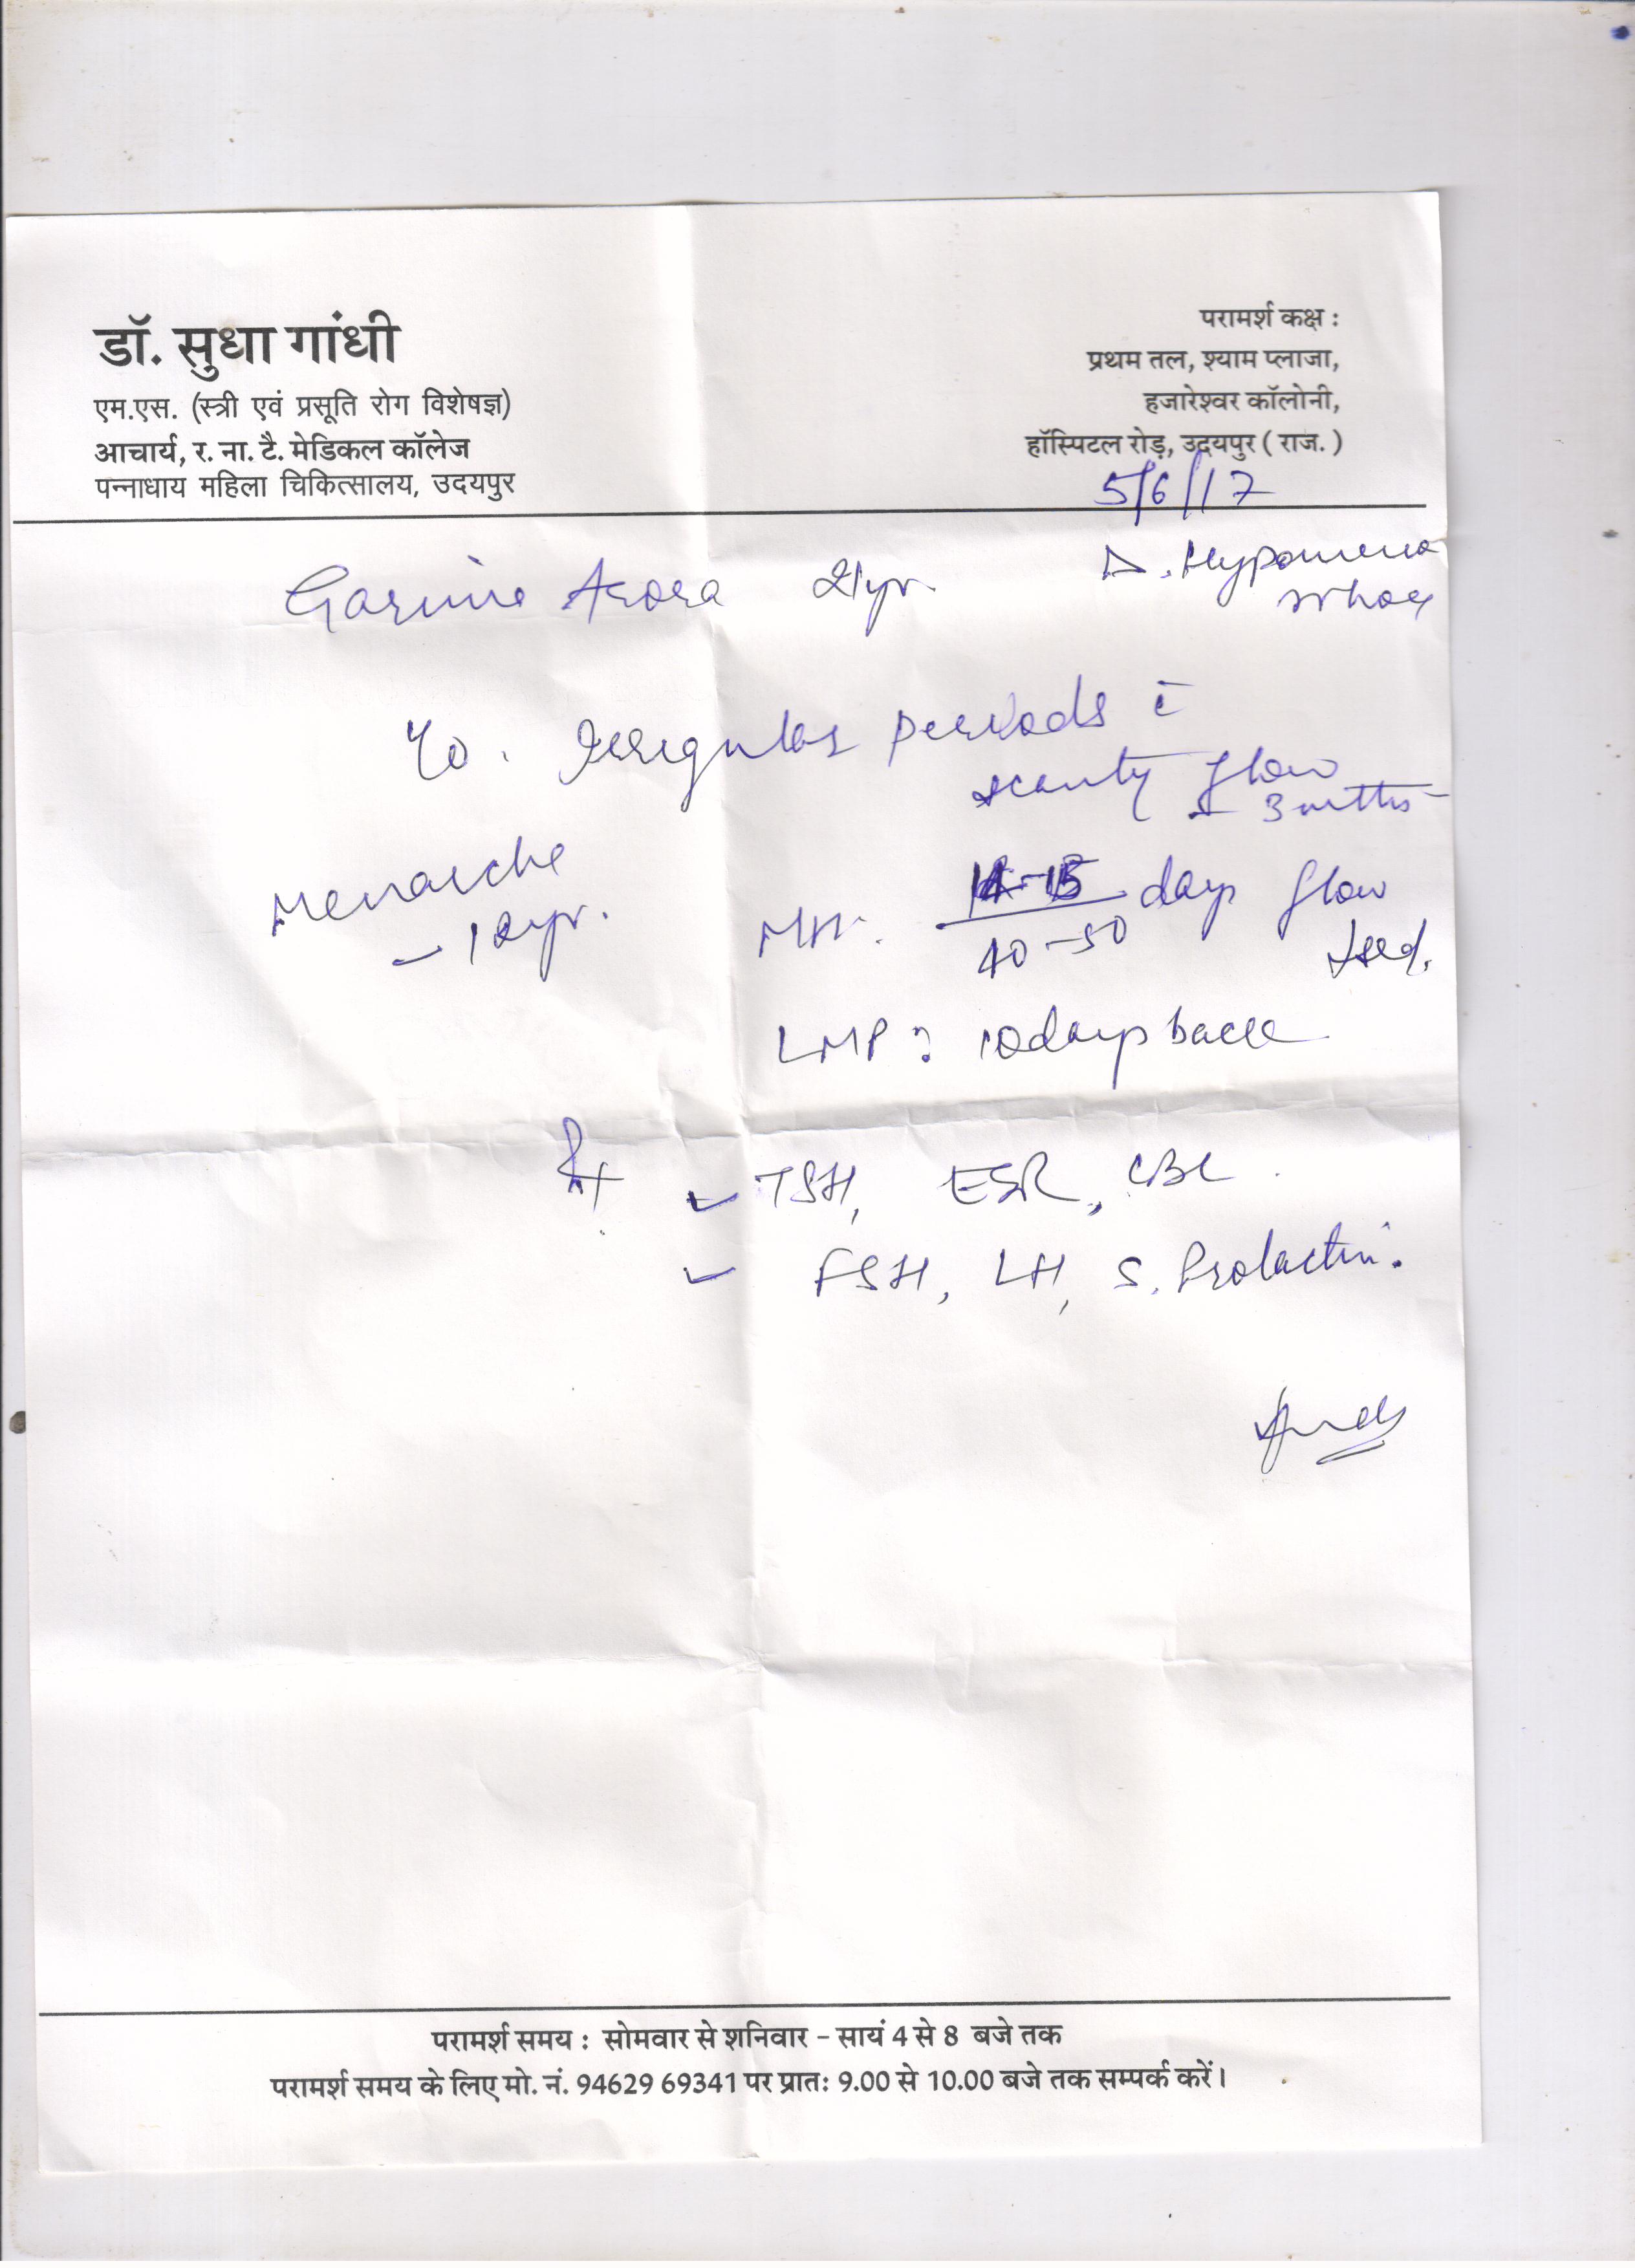 डॉ. सुधा गांधी
एम.एस. (स्त्री एवं प्रसूति रोग विशेषज्ञ)
आचार्य, र. ना. टै. मेडिकल कॉलेज
पन्नाधाय महिला चिकित्सालय, उदयपुर
परामर्श कक्ष :
प्रथम तल, श्याम प्लाजा,
हजारेश्वर कॉलोनी,
हॉस्पिटल रोड़, उदयपुर ( राज. )
5/6/17
Garima Arora 21yr.
Δ. Hypomeno
rrhoea
C/O. Irregular periods c̄
scanty flow
3 mths
Menarche
- 12yr.
MH. days flow
40-50
LMP : 10 days back
Rx TSH, ESR, CBC
FSH, LH, S. Prolactin.
परामर्श समय : सोमवार से शनिवार - सायं 4 से 8 बजे तक
परामर्श समय के लिए मो. नं. 94629 69341 पर प्रातः 9.00 से 10.00 बजे तक सम्पर्क करें।